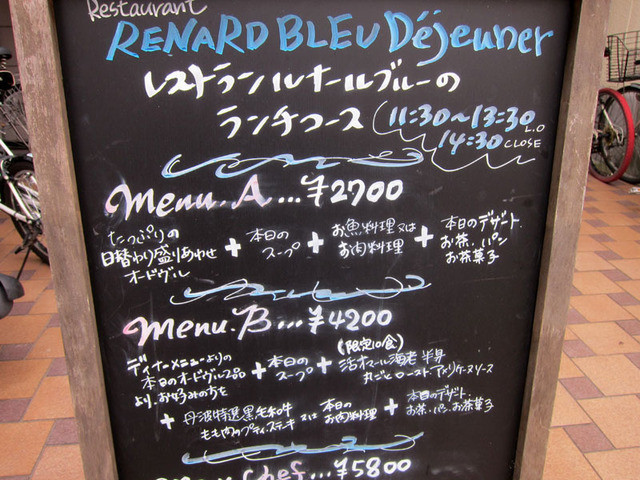 Restaurant
RENARD BLEU Déjeuner
レストランルナールブルーの
ランチコース (11:30～13:30 L.O
14:30 CLOSE
Menu.A...¥2700
たっぷりの
日替わり盛りあわせ
オードヴル
+ 本日の
スープ
+ お魚料理又は
お肉料理
+ 本日のデザート.
お茶.パン
お茶菓子
Menu.B...¥4200
ディナーメニューよりの
本日のオードヴル2品
より、お好みの方を
+ 本日の
スープ
+ (限定10食)
活オマール海老 半身
丸ごとロースト アメリケーヌソース
+ 丹波特選黒毛和牛
もも肉のプティステーキ 又は 本日の
お肉料理
+ 本日のデザート.
お茶.パン.お茶菓子
Menu Chef...¥5800